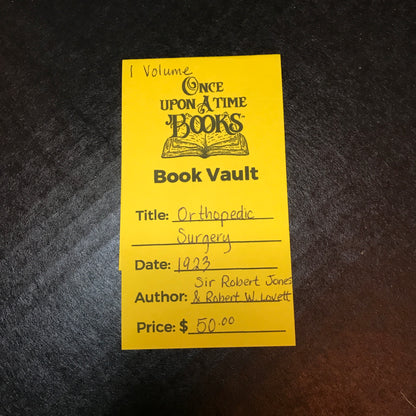 1 Volume
ONCE
UPON A TIME
BOOKS™
Book Vault
Title: Orthopedic
Surgery
Date: 1923
Sir Robert Jones
Author: & Robert W. Lovett
Price: $ 50.00